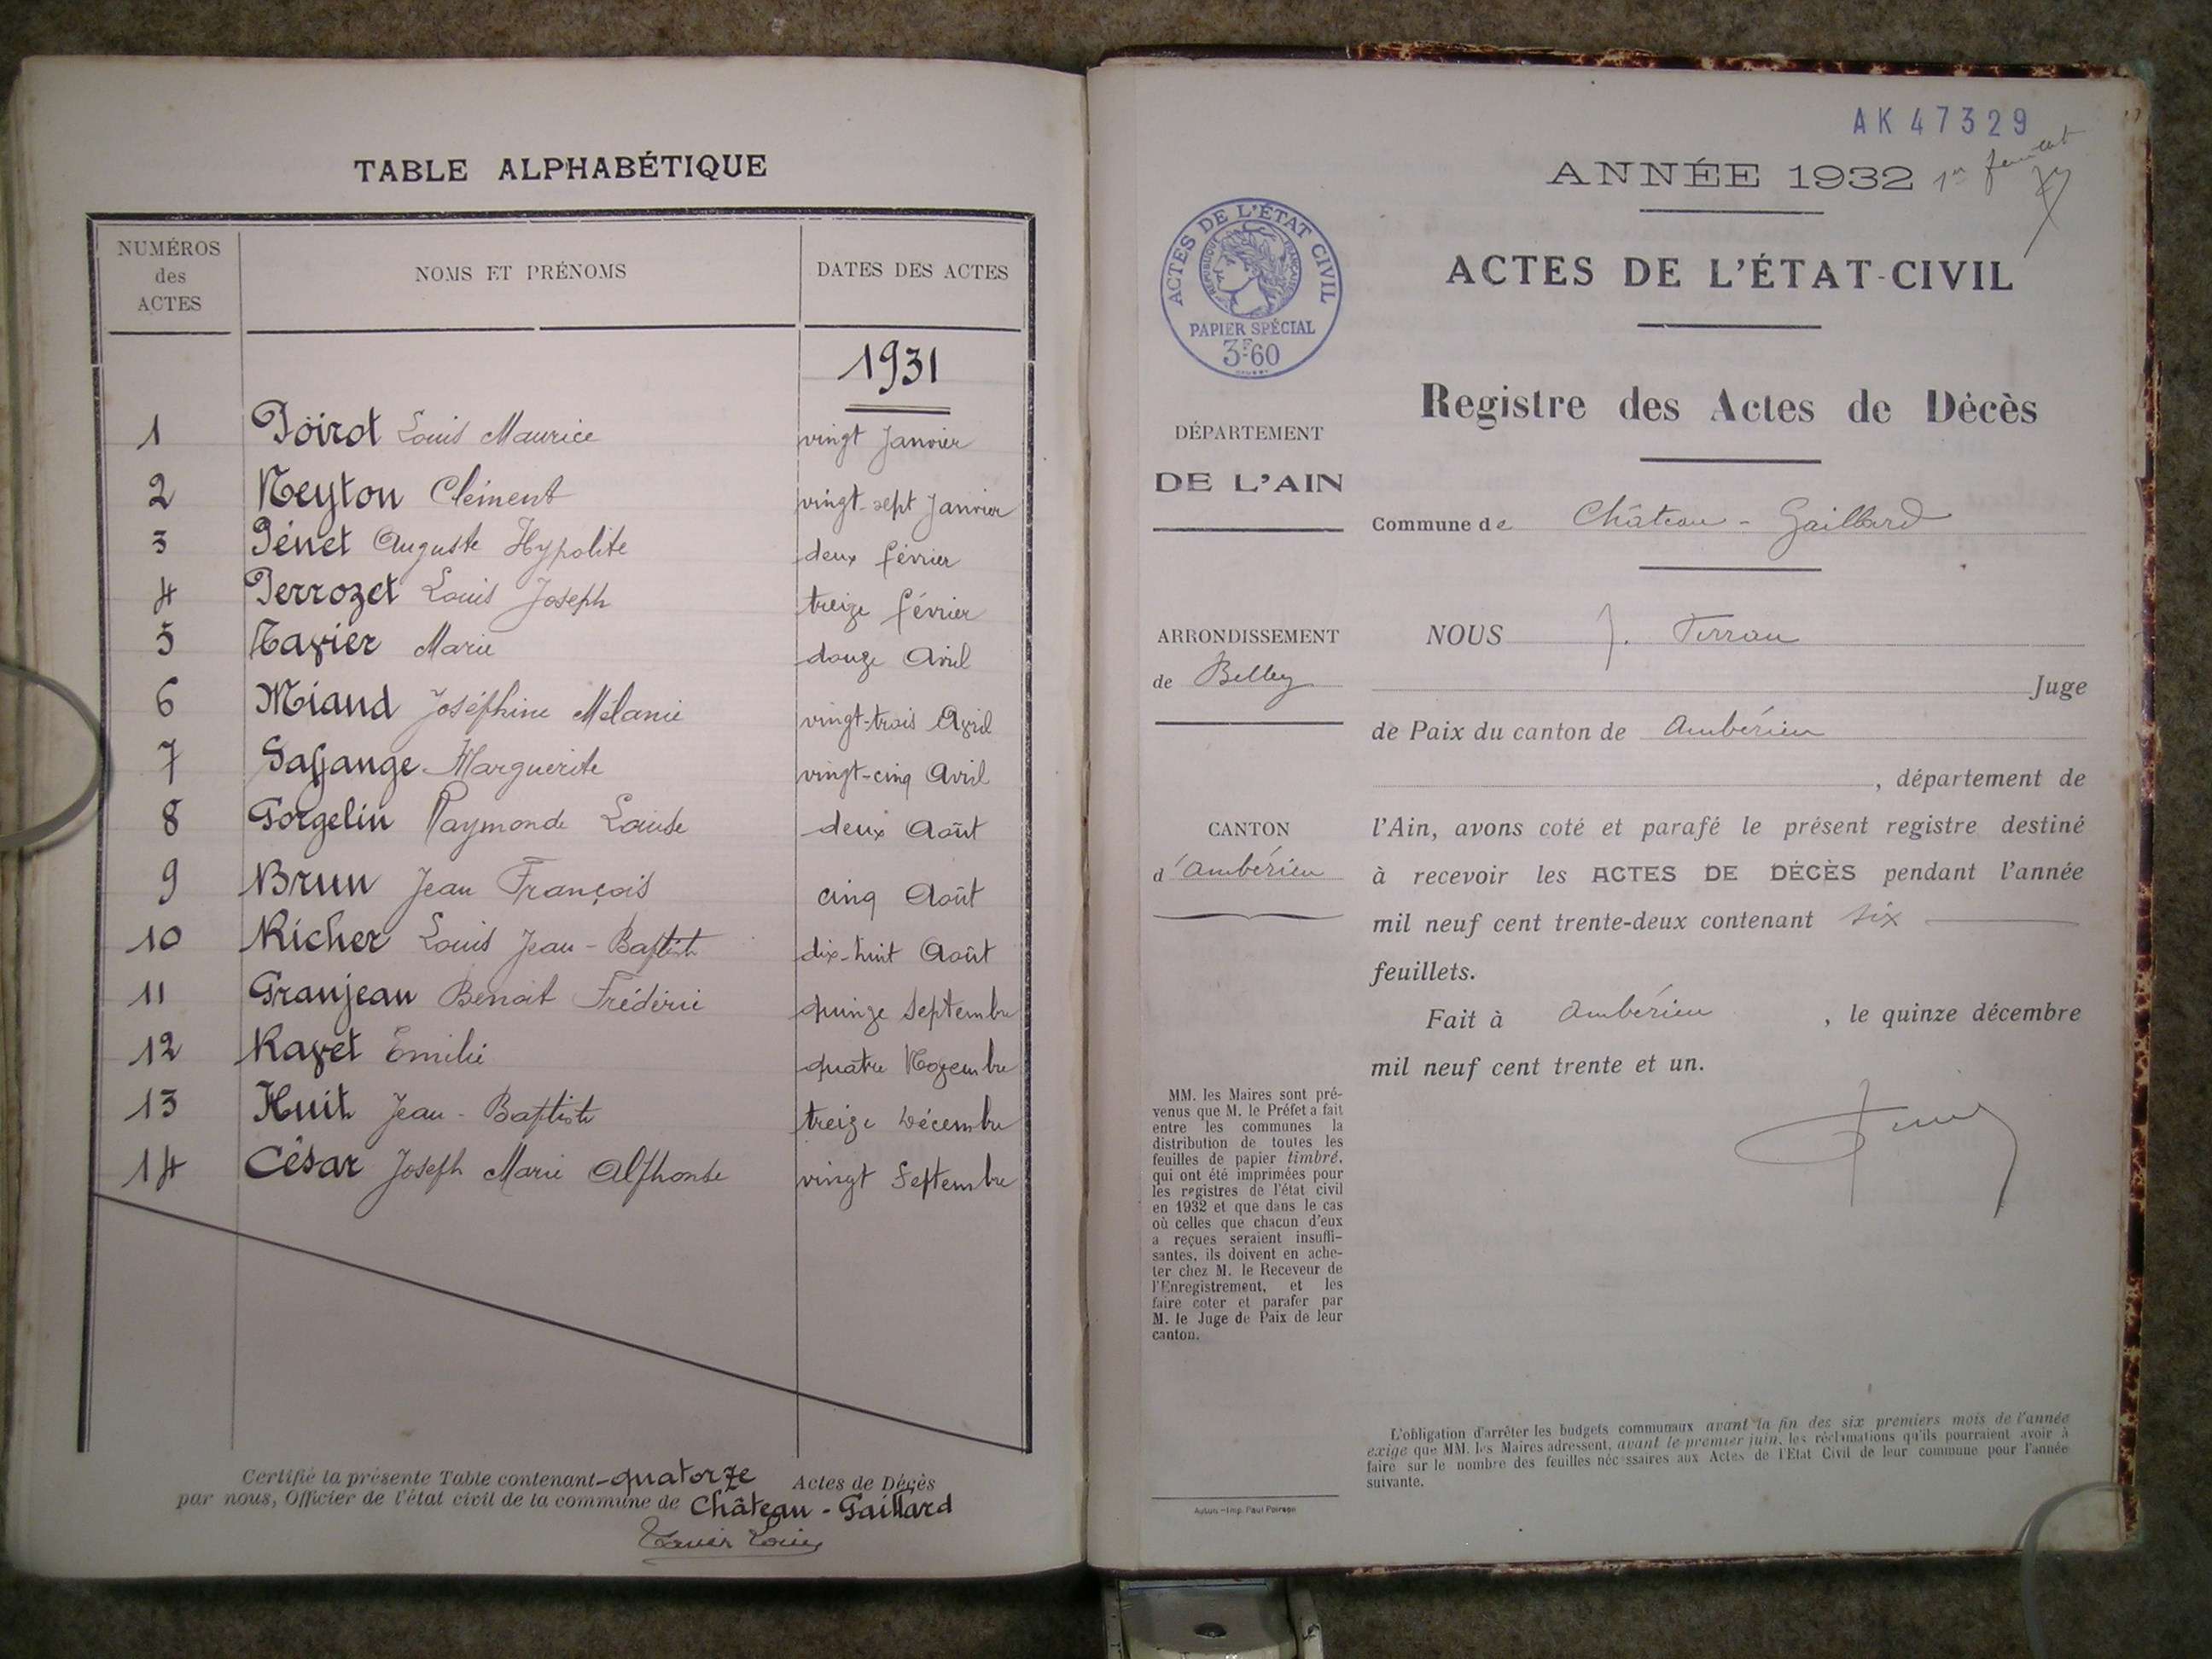 TABLE ALPHABÉTIQUE
NUMÉROS des ACTES NOMS ET PRÉNOMS DATES DES ACTES
1931
1 Poirot Louis Maurice vingt Janvier
2 Neyton Clément vingt-sept Janvier
3 Pénet Auguste Hypolite deux février
4 Perrozet Louis Joseph treize février
5 Tavier Marie douze Avril
6 Miand Joséphine Mélanie vingt-trois Avril
7 Marguerite vingt-cinq Avril
8 Gorgelin Raymonde Louise deux Août
9 Brun Jean François cinq Août
10 Richer Louis Jean-Baptiste dix-huit Août
11 Granjean Benoit Frédéric quinze Septembre
12 Ravet Emilie quatre Novembre
13 Huit Jean-Baptiste treize Décembre
14 César Joseph Marie Alphonse vingt Septembre
Certifié la présente Table contenant quatorze Actes de Décès
par nous, Officier de l'état civil de la commune de Château-Gaillard
Tavier Louis
AK 47329
ANNÉE 1932
ACTES DE L'ÉTAT CIVIL
RÉPUBLIQUE FRANÇAISE
PAPIER SPÉCIAL
3F60
ACTES DE L'ÉTAT-CIVIL
Registre des Actes de Décès
DÉPARTEMENT
DE L'AIN
Commune de Château-Gaillard
ARRONDISSEMENT
de Belley
CANTON
d'Ambérieu
NOUS J. Juge
de Paix du canton de Ambérieu
, département de
l'Ain, avons coté et parafé le présent registre destiné
à recevoir les ACTES DE DÉCÈS pendant l'année
mil neuf cent trente-deux contenant six
feuillets.
Fait à Ambérieu, le quinze décembre
mil neuf cent trente et un.
MM. les Maires sont pré-
venus que M. le Préfet a fait
entre les communes la
distribution de toutes les
feuilles de papier timbré,
qui ont été imprimées pour
les registres de l'état civil
en 1932 et que dans le cas
où celles que chacun d'eux
a reçues seraient insuffi-
santes, ils doivent en ache-
ter chez M. le Receveur de
l'Enregistrement, et les
faire coter et parafer par
M. le Juge de Paix de leur
canton.
L'obligation d'arrêter les budgets communaux avant la fin des six premiers mois de l'année
exige que MM. les Maires adressent, avant le premier juin, les réclamations qu'ils pourraient avoir à
faire sur le nombre des feuilles néc ssaires aux Actes de l'Etat Civil de leur commune pour l'année
suivante.
Autun.-Imp. Paul Poirson